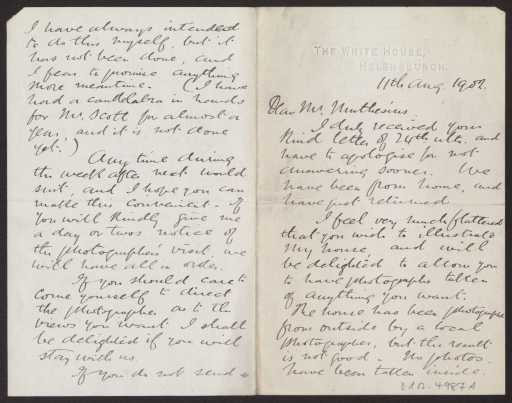 THE WHITE HOUSE,
HELENSBURGH.
11th Aug 1902.
Dear Mr. Muthesius
I duly received your
kind letter of 24th ulto. and
have to apologise for not
answering sooner. We
have been from home, and
have just returned.
I feel very much flattered
that you wish to illustrate
my house, and will
be delighted to allow you
to have photographs taken
of anything you want.
The house has been photographed
from outside by a local
photographer, but the result
is not good. No photos.
have been taken inside.
I have always intended
to do this myself, but it
has not been done, and
I fear to promise anything
more meantime. (I have
had a candelabra in hands
for Mr. Scott for almost a
year, and it is not done
yet.)
Any time during
the week after next would
suit, and I hope you can
make this convenient. If
you will kindly give me
a day or two's notice of
the photographer's visit, we
will have all in order.
If you should care to
come yourself to direct
the photographer as to the
views you want I shall
be delighted if you will
stay with us.
If you do not send a